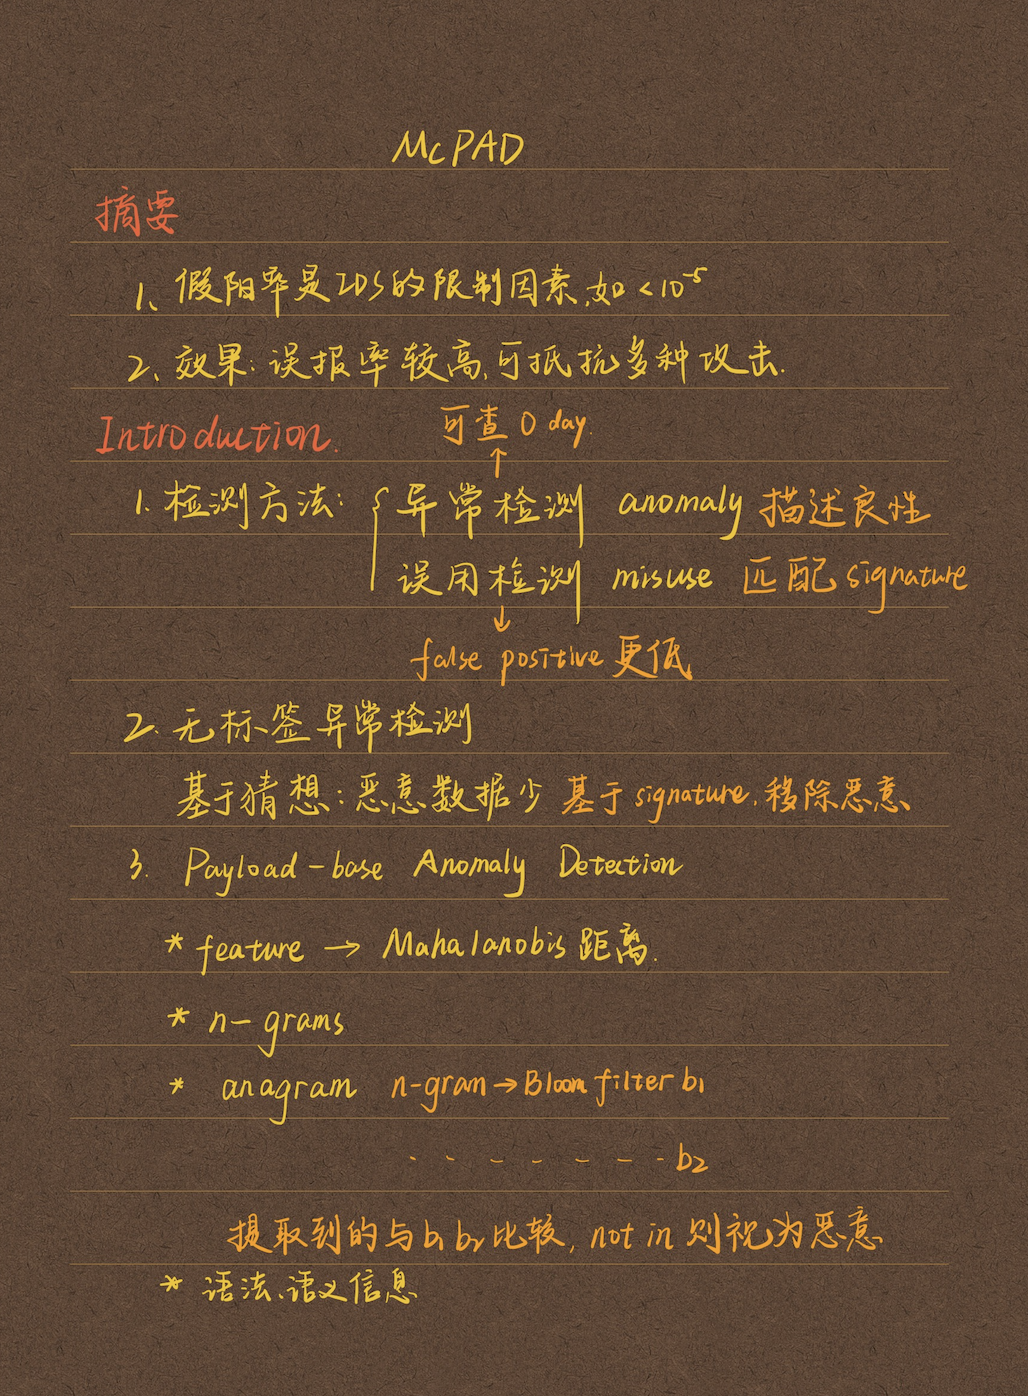 McPAD
摘要
1、假阳率是IDS的限制因素,如<10⁻⁵
2、效果:误报率较高,可抵抗多种攻击.
Introduction.
可查 0 day.
↑
1. 检测方法: { 异常检测 anomaly 描述良性
误用检测 misuse 匹配 signature
↓
false positive 更低
2. 无标签异常检测
基于猜想:恶意数据少 基于 signature,移除恶意
3. Payload-base Anomaly Detection
* feature → Mahalanobis 距离.
* n-grams
* anagram n-gran → Bloom filter b1
- - - - - - - b2
提取到的与 b1 b2 比较, not in 则视为恶意
* 语法、语义信息